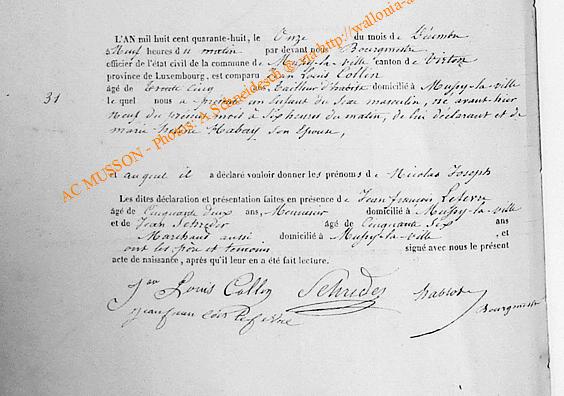 L'AN mil huit cent quarante-huit, le Onze du mois de Décembre
à Neuf heures du matin par devant nous Bourgmestre
officier de l'état civil de la commune de Mussy-la-ville canton de Virton
province de Luxembourg, est comparu Jean Louis Collin
âgé de trente cinq ans, tailleur d'habits domicilié à Mussy-la-ville
31
lequel nous a présenté un enfant de sexe masculin, né avant hier
neuf du présent mois à six heures du matin, de lui déclarant et de
marie Habay son épouse,
et auquel il a déclaré vouloir donner les prénoms de Nicolas Joseph
Les dites déclaration et présentation faites en présence de Jean françois Lefevre
âgé de Cinquante deux ans, Menuisier domicilié à Mussy-la-ville
et de Jean Schreder âgé de Cinquante six ans
Marchand aussi domicilié à Mussy-la-ville, et
ont les père et temoins signé avec nous le présent
acte de naissance, après qu'il leur en a été fait lecture.
Jean Louis Collin Schreder
Bourgmestre
Jean francois Lefevre
AC MUSSON - Photos: A Schneidesch © via http://wallonia-a